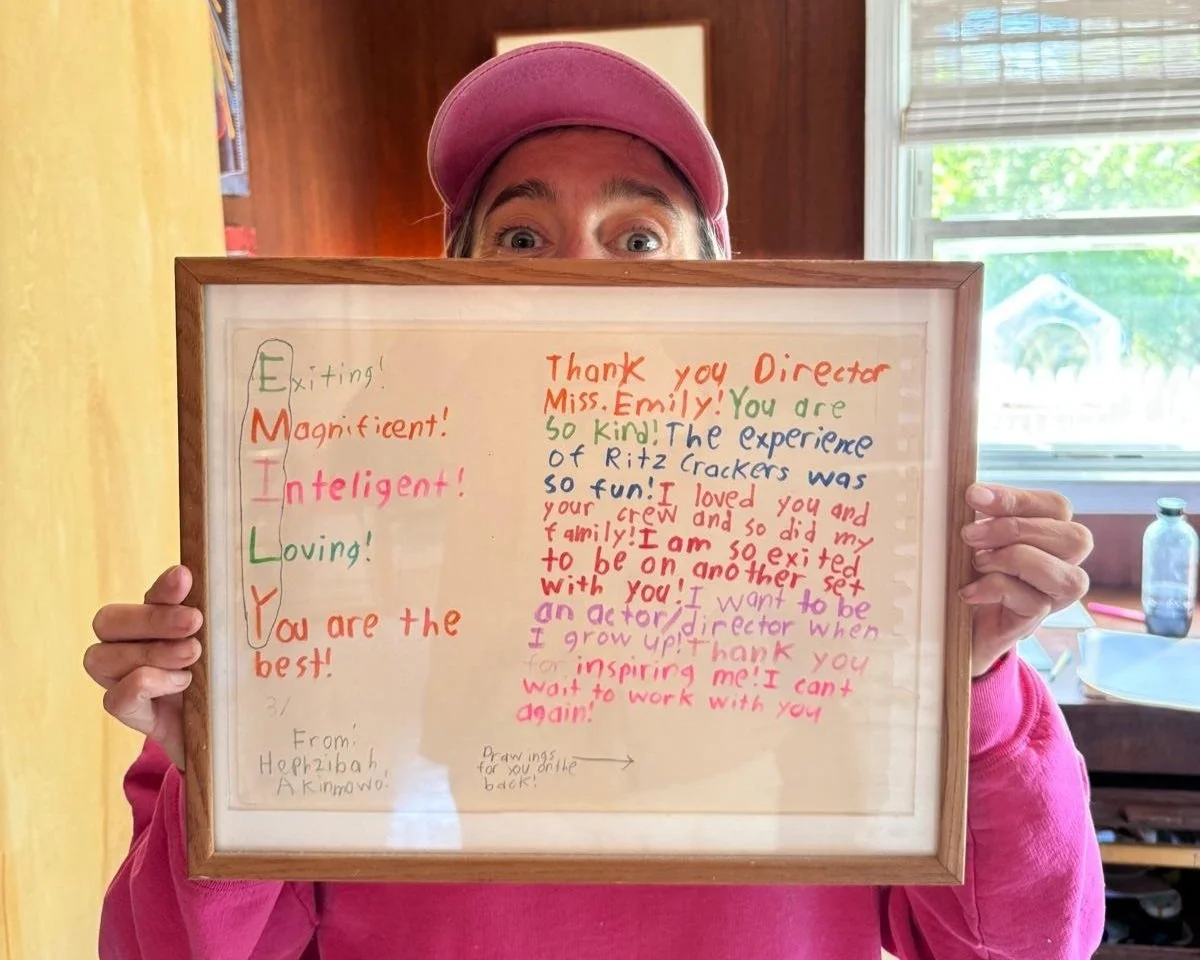 Exiting!
Magnificent!
Inteligent!
Loving!
You are the
best!
3/
From:
Hephzibah
Akinmowo!
Thank you Director
Miss. Emily! You are
so kind! The experience
of Ritz Crackers was
so fun! I loved you and
your crew and so did my
family! I am so exited
to be on another set
with you! I want to be
an actor/director when
I grow up! Thank you
for inspiring me! I cant
wait to work with you
again!
Drawings
for you on the
back!